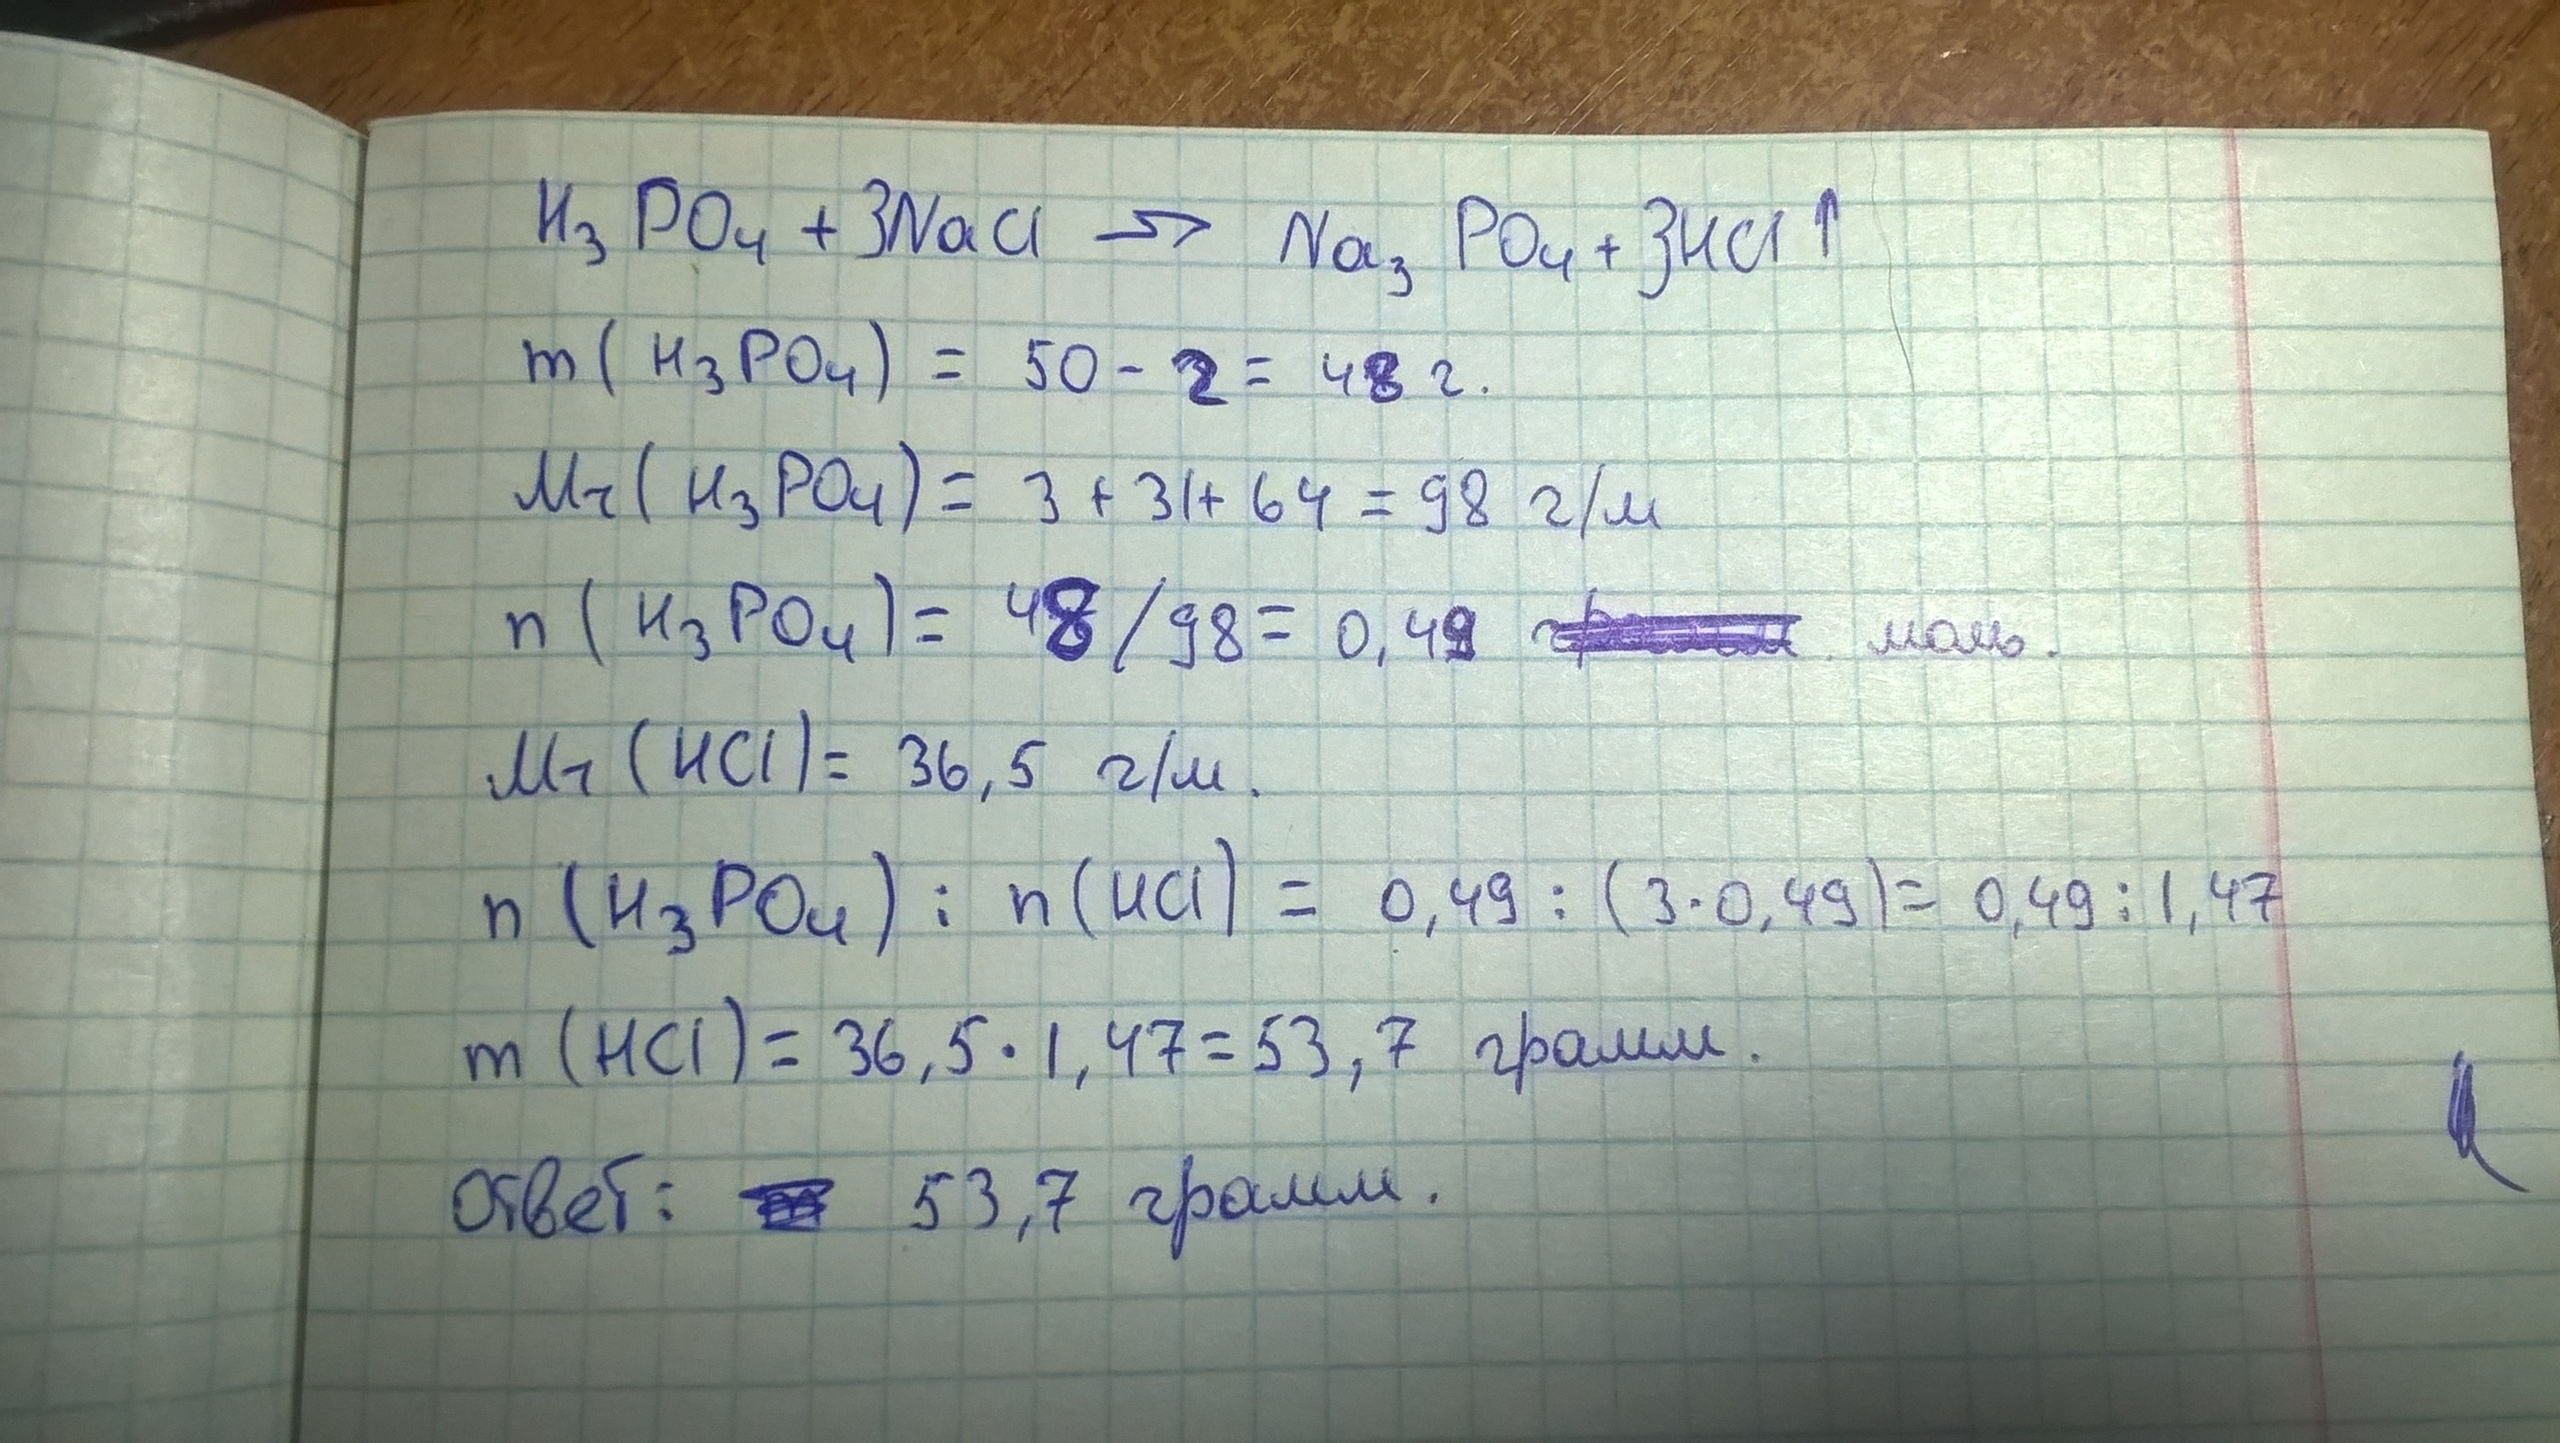 H₃PO₄ + 3NaCl → Na₃PO₄ + 3HCl↑
m(H₃PO₄) = 50 - 2 = 48 г.
Mr(H₃PO₄) = 3 + 31 + 64 = 98 г/м
n(H₃PO₄) = 48/98 = 0,49 моль.
Mr(HCl) = 36,5 г/м.
n(H₃PO₄) : n(HCl) = 0,49 : (3·0,49) = 0,49 : 1,47
m(HCl) = 36,5 · 1,47 = 53,7 грамм.
Ответ: 53,7 грамм.